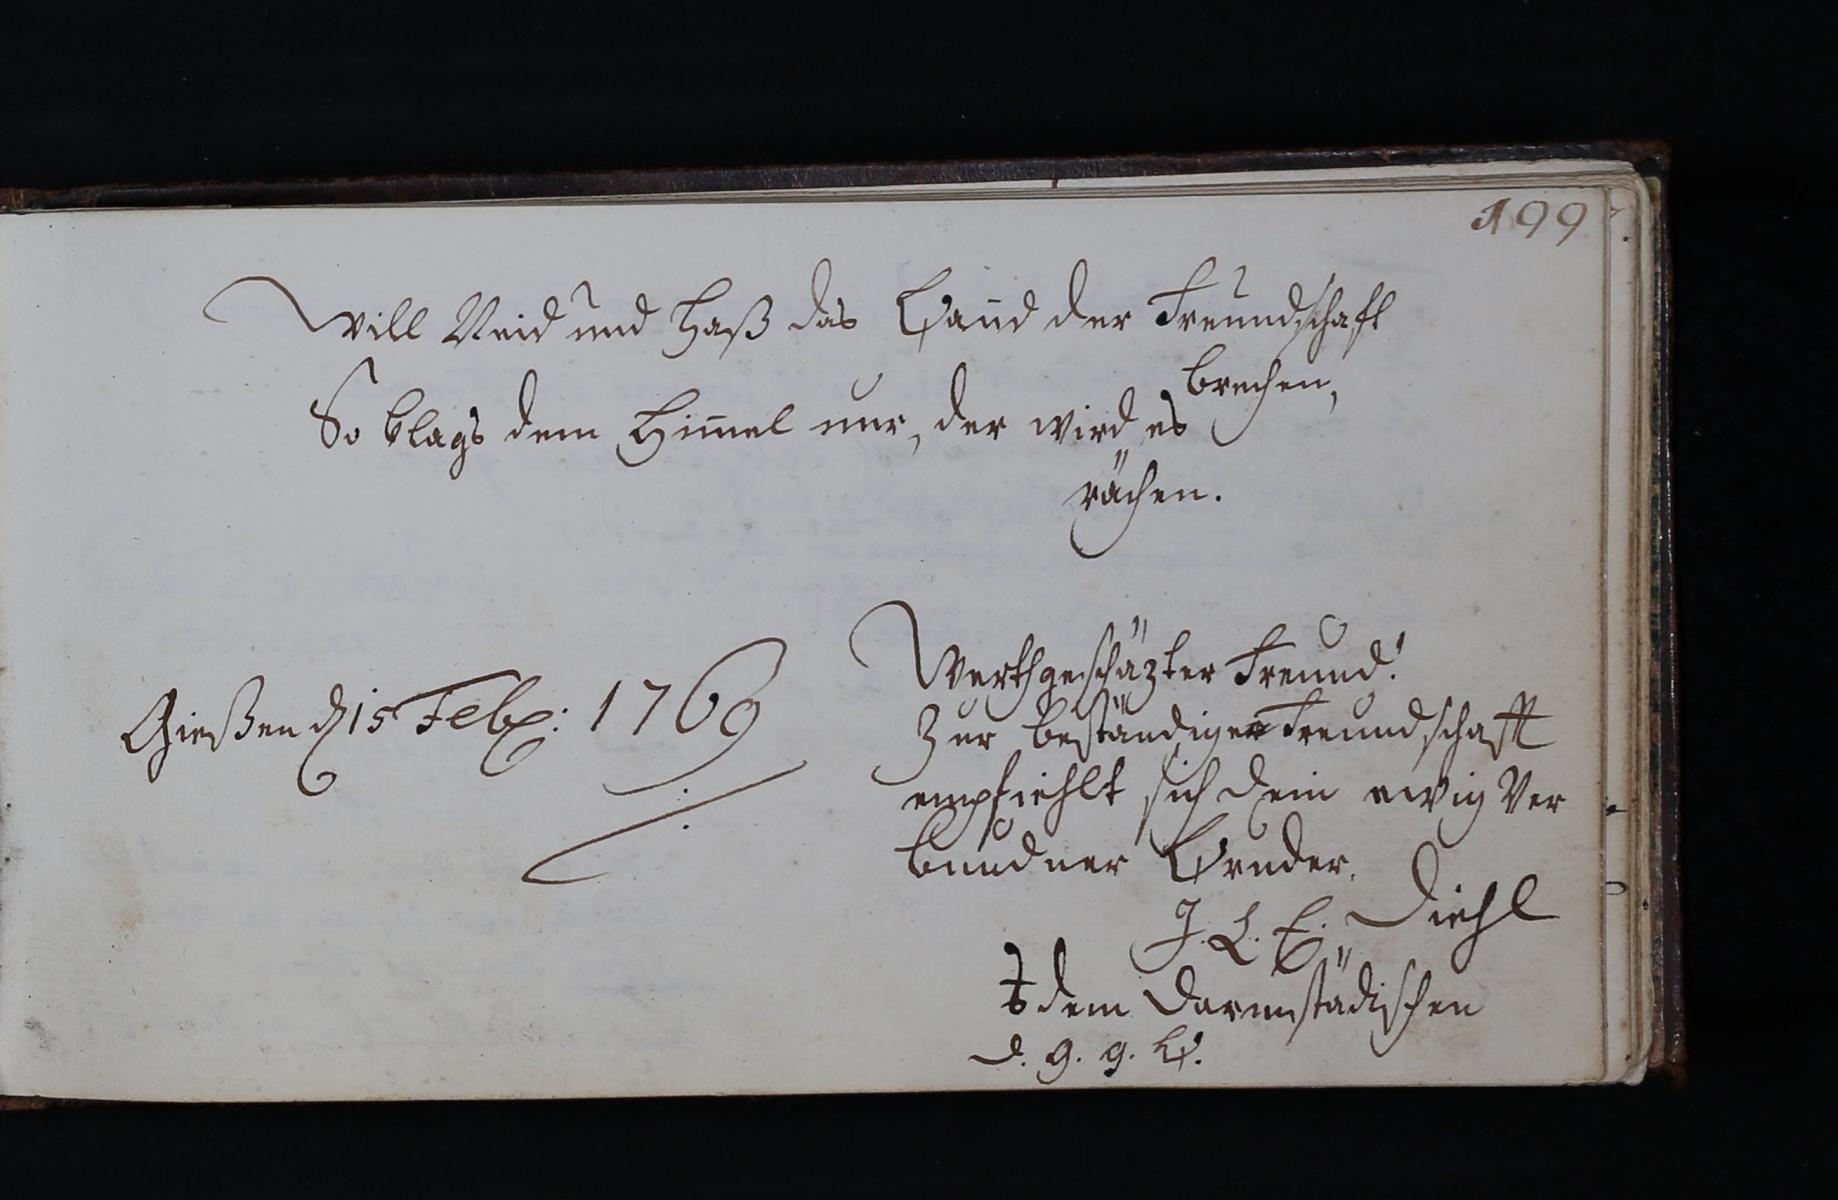 199
Will Neid und Haß das Band der Freundschaft
brechen,
So klags dem Himmel nur, der wird es
rächen.
Werthgeschäzter Freund!
Zur beständigen Freundschafft
empfiehlt sich dein ewig Ver
bundner Bruder.
J. L. E. Diehl
dem Darmstädischen
d. g. g. B.
Gießen d 15 Febr: 1769